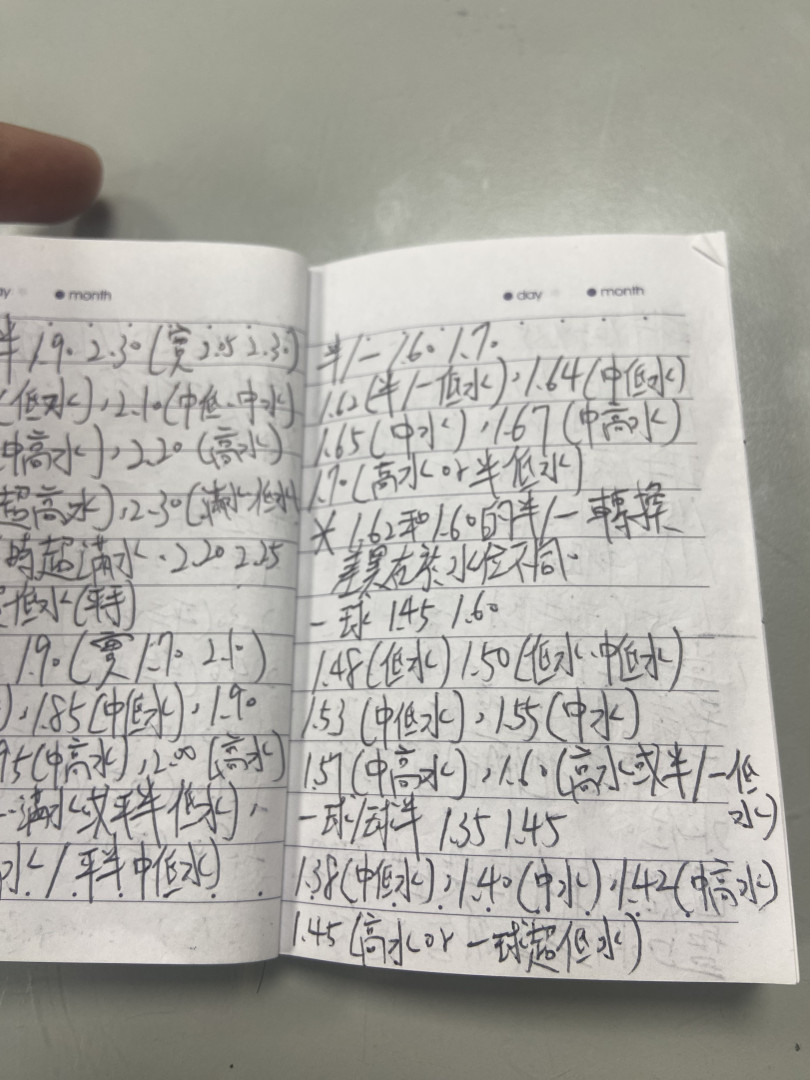 day month
半 1.90 2.30 (實 2.05 2.30)
(低水), 2.10 (中低.中水)
中高水), 2.20 (高水)
超高水), 2.30 (滿水.低水
時超滿水. 2.20 2.25
低水 (平手)
1.90 (實 1.70 2.10)
), 1.85 (中低水), 1.90
95 (中高水), 2.00 (高水)
滿水或平半低水),
水 / 平半中低水)
day month
半/一 1.60 1.70
1.62 (半/一低水), 1.64 (中低水)
1.65 (中水), 1.67 (中高水)
1.70 (高水 or 半低水)
* 1.62和1.60的半/一 轉換
差異在於水位不同.
一球 1.45 1.60
1.48 (低水) 1.50 (低水.中低水)
1.53 (中低水), 1.55 (中水)
1.57 (中高水), 1.60 (高水或半/一低
水)
一球/球半 1.35 1.45
1.38 (中低水), 1.40 (中水), 1.42 (中高水)
1.45 (高水 or 一球超低水)